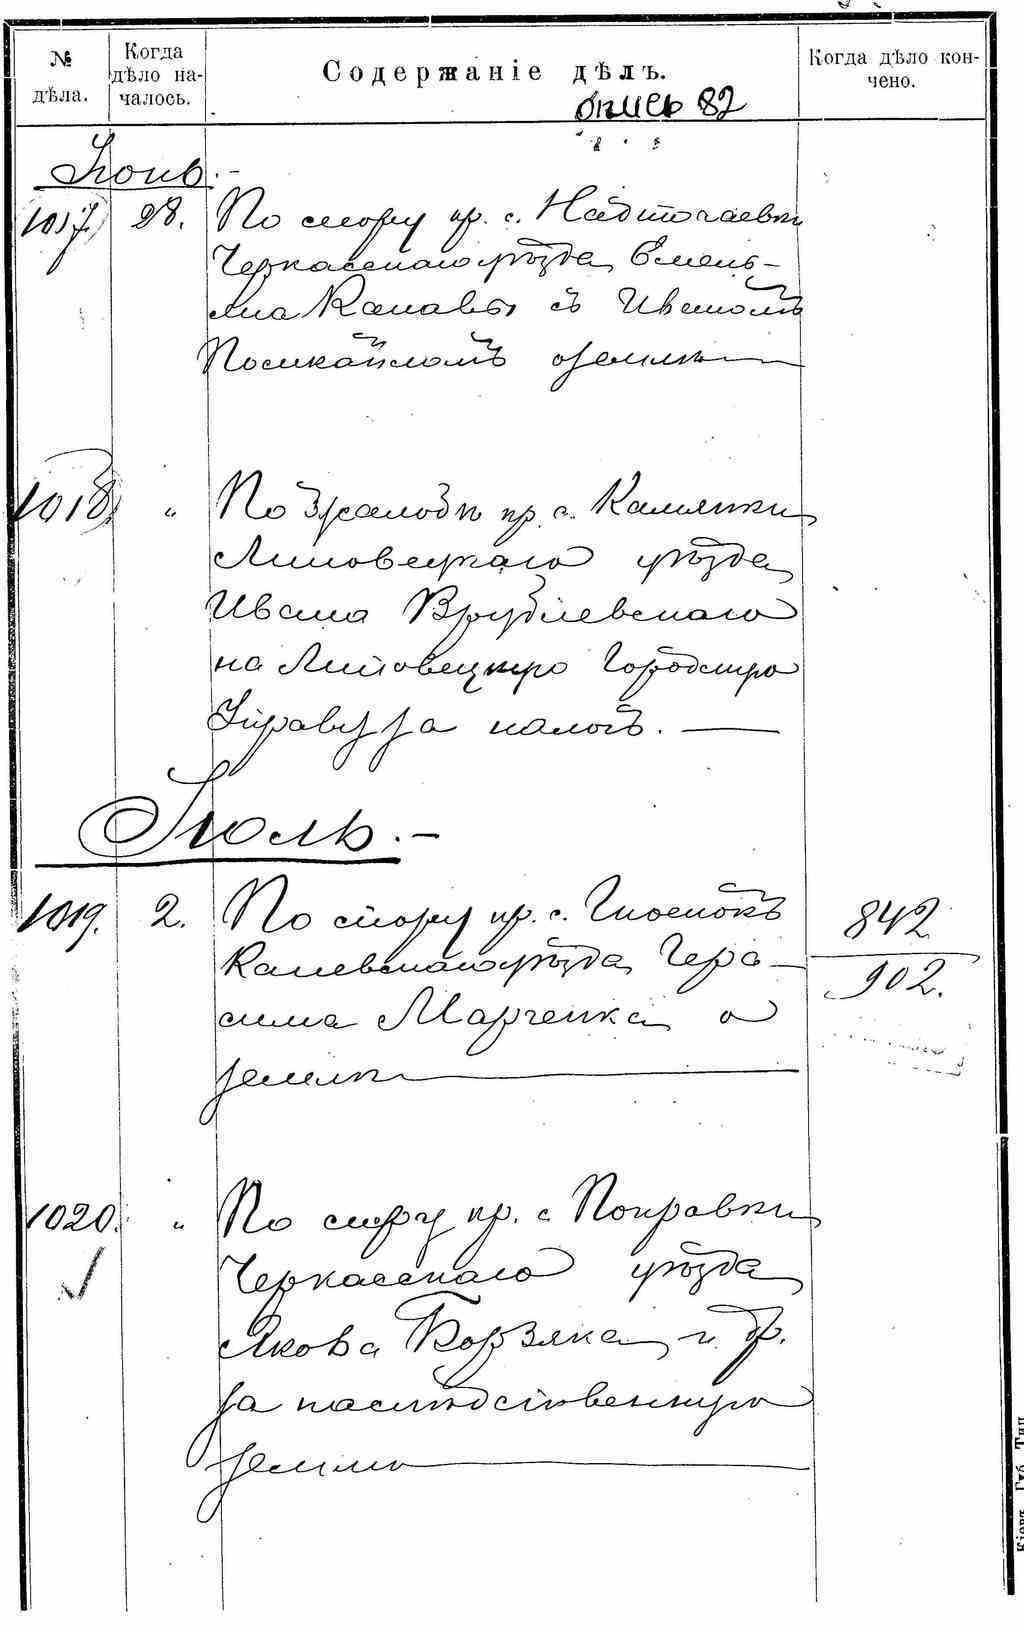 № дѣла.
Когда дѣло на-
чалось.
Содержаніе дѣлъ.
Когда дѣло кон-
чено.
опись 82
Іюнь.-
1017. 28. По спору кр. с. Надточаевки
Черкасскаго уѣзда Емель-
яна Канавы съ Иваномъ
о землѣ
1018. " По жалобѣ кр. с. Камянки
Липовецкаго уѣзда
Ивана Врублевскаго
на Липовецкую Городскую
Управу за налогъ.
Іюль.-
1019. 2. По спору кр. с. 842
Каневскаго уѣзда Гера- 902.
сима Марченка о
землѣ
1020. " По спору кр. с. Поправки
Черкасскаго уѣзда
Якова Борзяка и др.
за наслѣдственную
землю
Кіевъ. Губ. Тип.